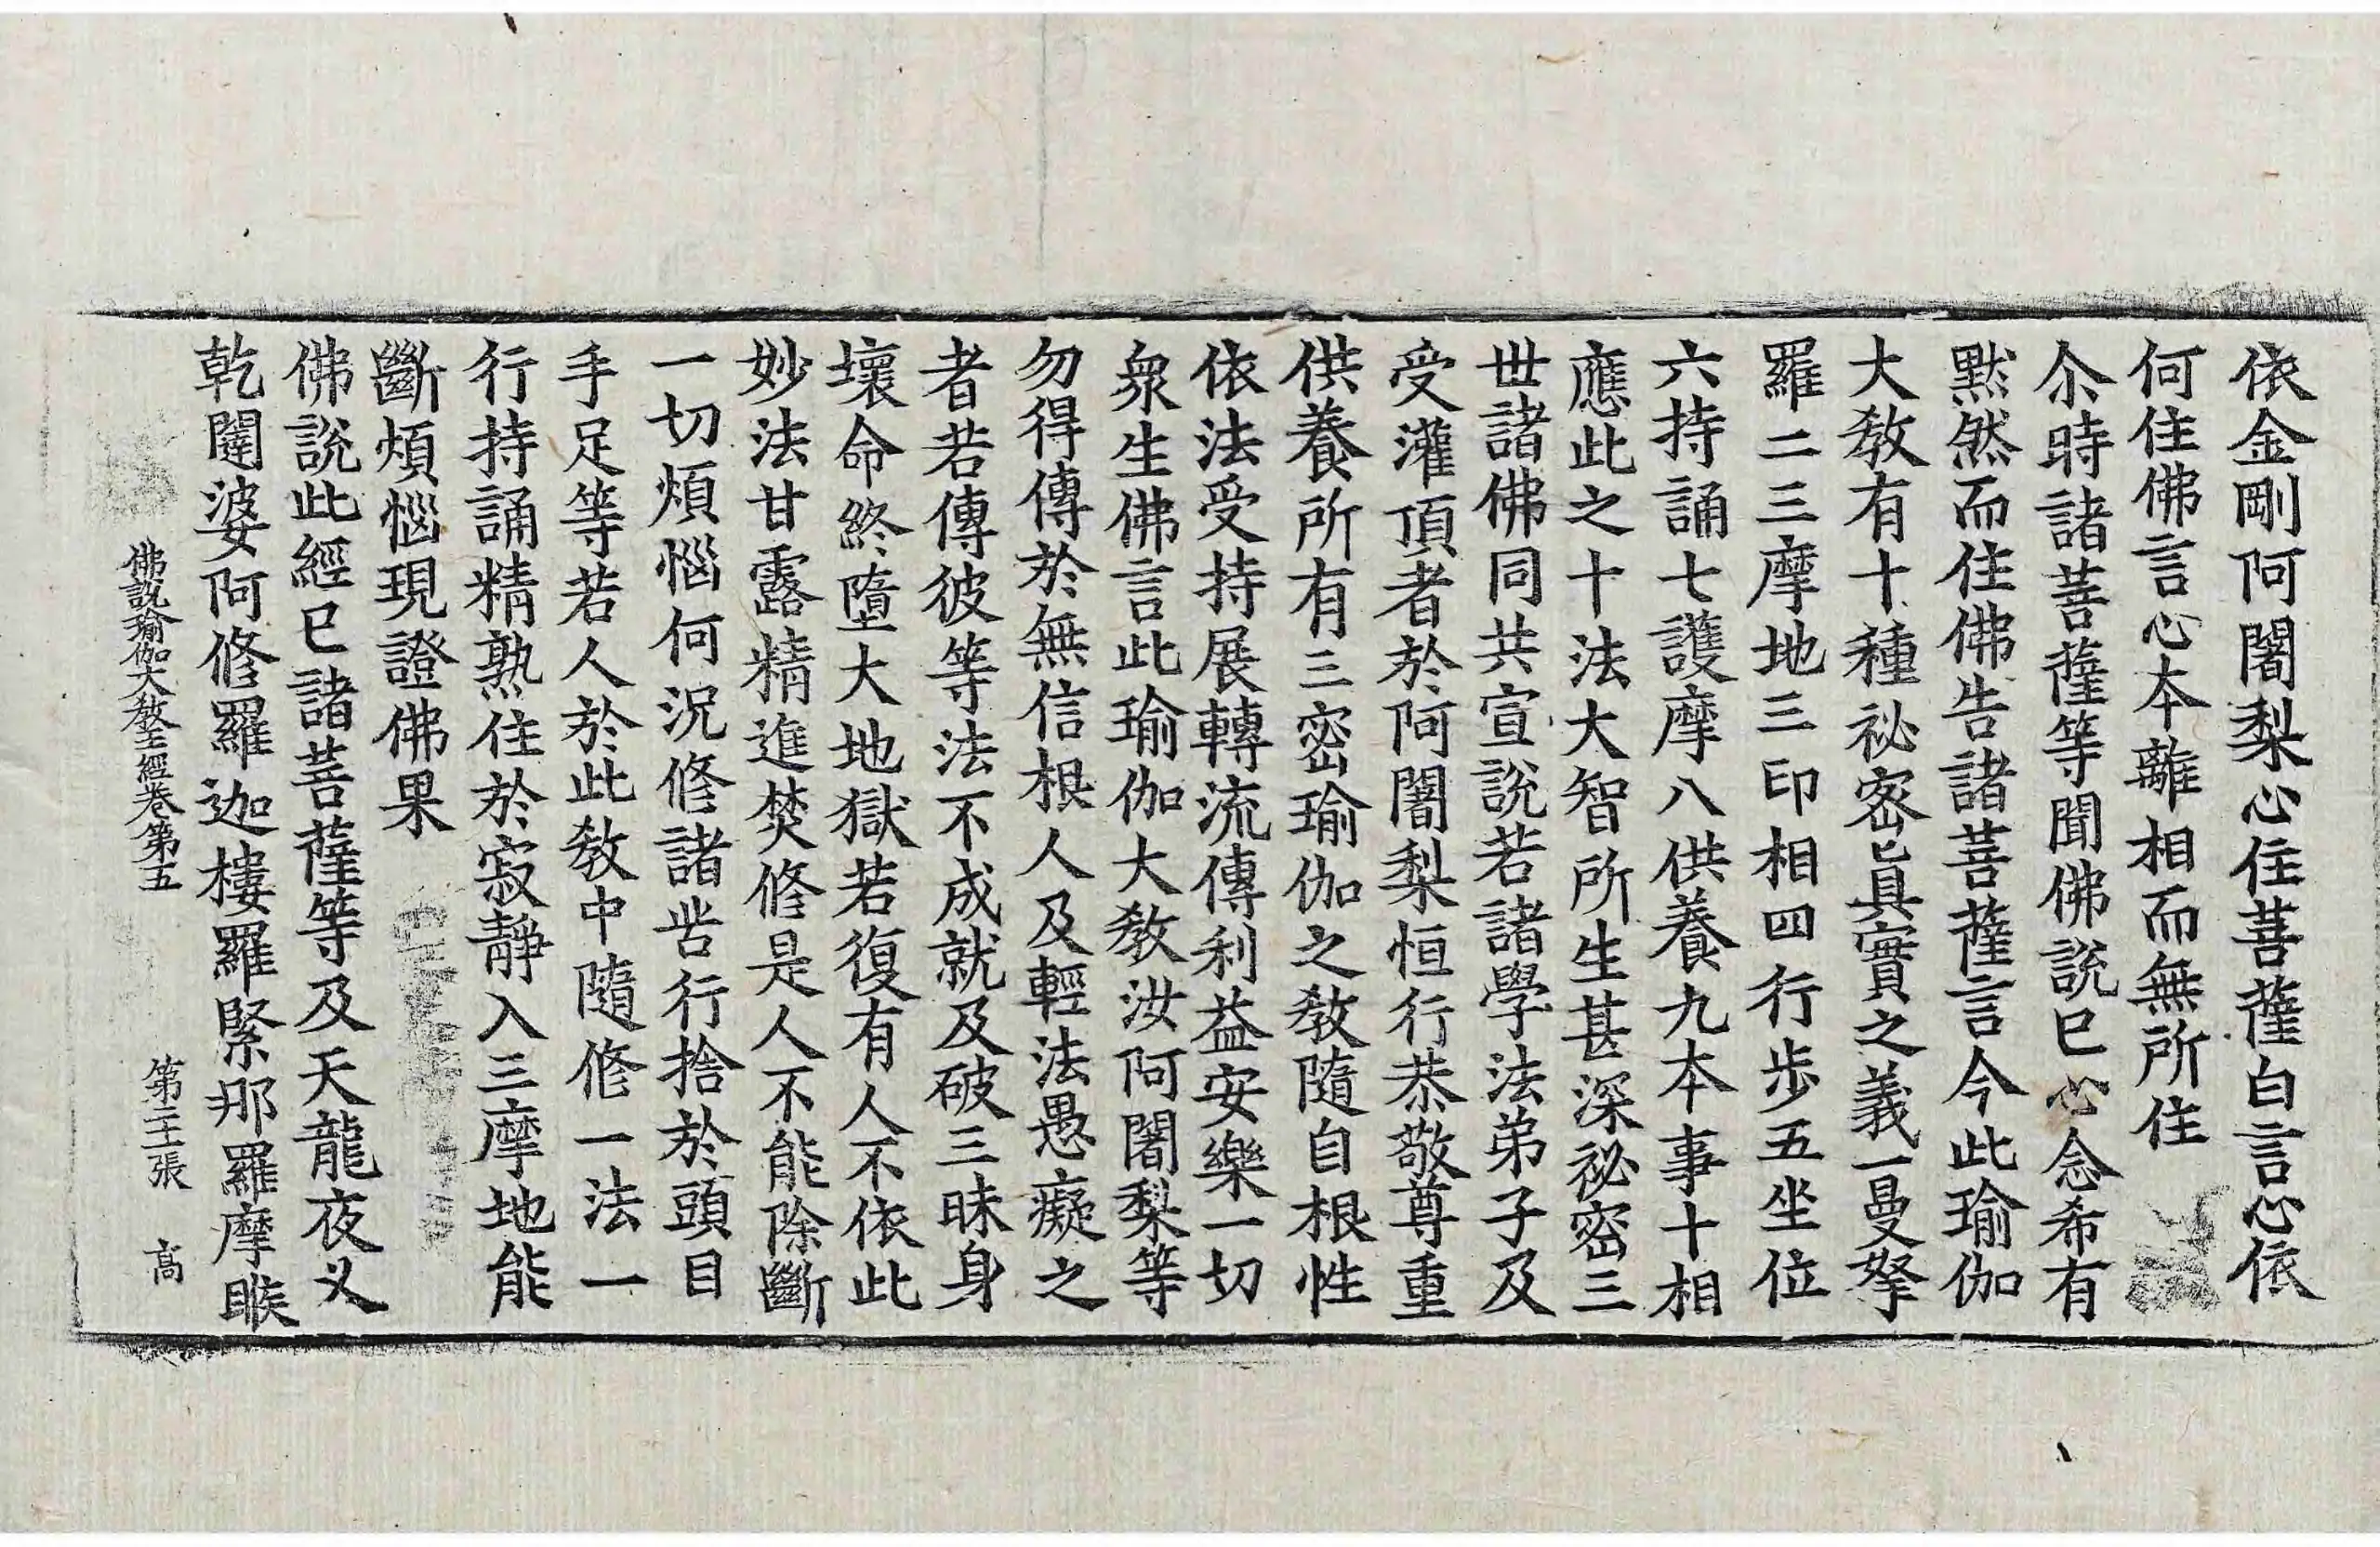 依金剛阿闍梨心住菩薩白言心依
何住佛言心本離相而無所住
尒時諸菩薩等聞佛說已心念希有
默然而住佛告諸菩薩言今此瑜伽
大教有十種祕密眞實之義一曼拏
羅二三摩地三印相四行步五坐位
六持誦七護摩八供養九本事十相
應此之十法大智所生甚深祕密三
世諸佛同共宣說若諸學法弟子及
受灌頂者於阿闍梨恒行恭敬尊重
供養所有三密瑜伽之教隨自根性
依法受持展轉流傳利益安樂一切
衆生佛言此瑜伽大教汝阿闍梨等
勿得傳於無信根人及輕法愚癡之
者若傳彼等法不成就及破三昧身
壞命終墮大地獄若復有人不依此
妙法甘露精進焚修是人不能除斷
一切煩惱何況修諸苦行捨於頭目
手足等若人於此教中隨修一法一
行持誦精熟住於寂靜入三摩地能
斷煩惱現證佛果
佛說此經已諸菩薩等及天龍夜叉
乾闥婆阿修羅迦樓羅緊那羅摩睺
佛說瑜伽大教王經卷第五 第二十張 高